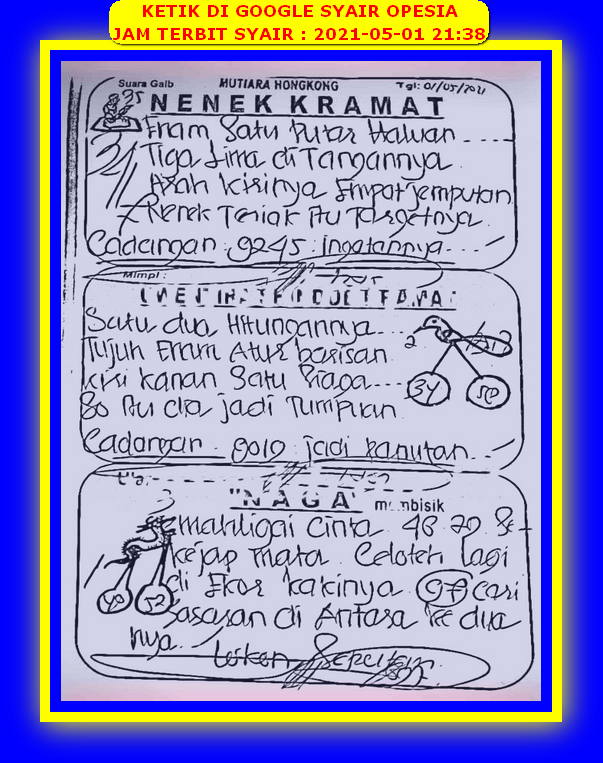 KETIK DI GOOGLE SYAIR OPESIA
JAM TERBIT SYAIR : 2021-05-01 21:38
Suara Gaib MUTIARA HONGKONG Tgl: 01/05/2021
NENEK KRAMAT
35
Enam Satu Putar Haluan
31 Tiga Lima di Tangannya
Arah Kirinya Empat jemputan
Nenek Teriak itu Targetnya
Cadangan : 9245 : ingatannya
Mimpi :
Satu dua Hitungannya
Tujuh Enam Atur barisan
kiri kanan Satu
80 itu dia jadi Tumpuan
Cadangan 9019 jadi panutan
2
34 50
"NAGA" membisik
mahligai cinta 48 70 Se-
kejap mata Celoteh lagi
di Ekor kakinya 97 cari
Sasaran di Antara ke dua
nya
52